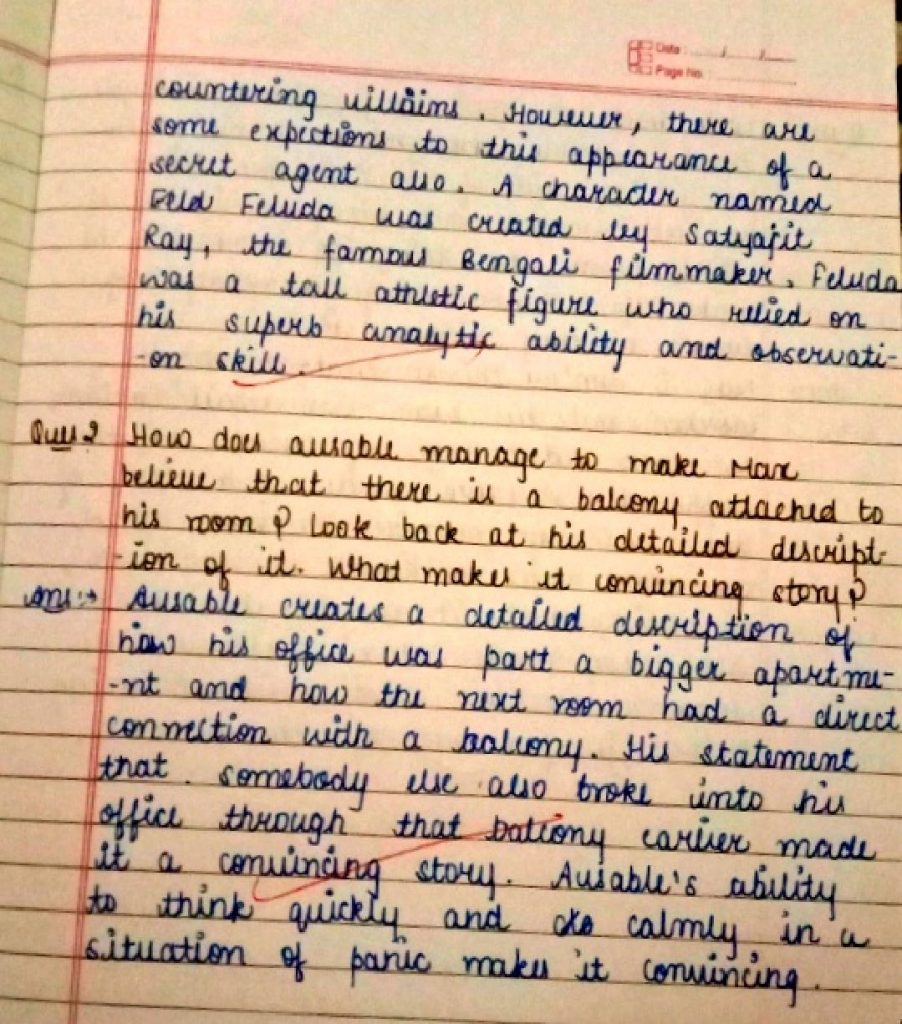 Date : / /
Page No.
countering villains. However, there are
some expections to this appearance of a
secret agent also. A character named
Feluda was created by Satyajit
Ray, the famous Bengali filmmaker. Feluda
was a tall athletic figure who relied on
his superb analytic ability and observati-
-on skill.
Ques 2 How does ausable manage to make Max
believe that there is a balcony attached to
his room? Look back at his detailed descript-
-ion of it. What makes it convincing story?
Ans:→ Ausable creates a detailed description of
how his office was part a bigger apartme-
-nt and how the next room had a direct
connection with a balcony. His statement
that somebody else also broke into his
office through that balcony earlier made
it a convincing story. Ausable's ability
to think quickly and calmly in a
situation of panic makes it convincing.